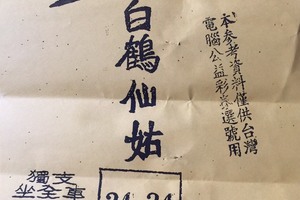 本參考資料僅供台灣
電腦公益彩券選號用
白鶴仙姑
獨支
坐全車
24 34